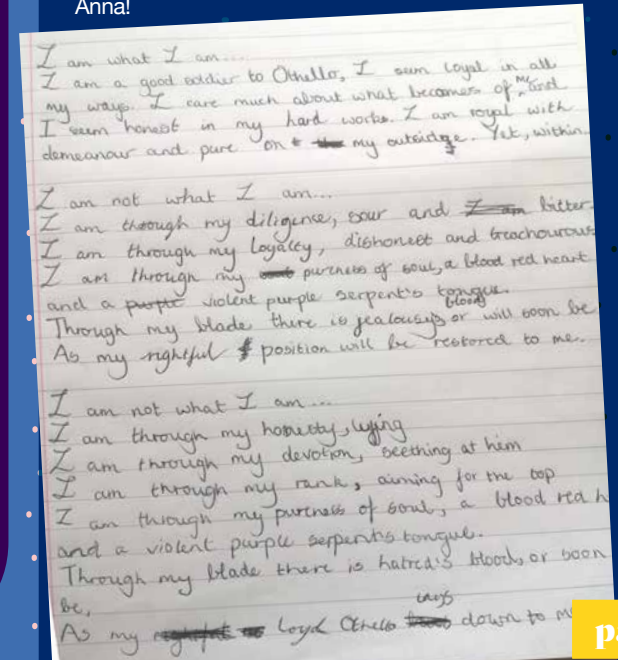 Anna!
I am what I am...
I am a good soldier to Othello, I seem loyal in all
my ways. I care much about what becomes of me and
I seem honest in my hard works. I am royal with
demeanour and pure on my outside. Yet, within
I am not what I am...
I am through my diligence, sour and bitter.
I am through my loyaltey, dishonest and treachourous
I am through my pureness of soul, a blood red heart
and a violent purple serpent's tongue.
Through my blade there is jealousys blood or will soon be
As my rightful position will be restored to me.
I am not what I am...
I am through my honesty, lying
I am through my devotion, seething at him
I am through my rank, aiming for the top
I am through my pureness of soul, a blood red h
and a violent purple serpents tongue.
Through my blade there is hatred's blood, or soon
be,
As my Othello lays down to m
p